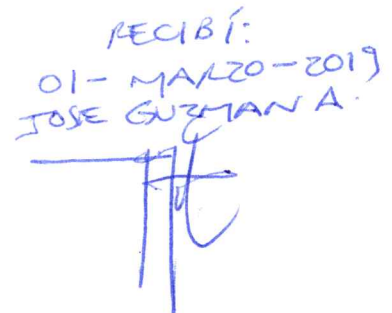 RECIBÍ:
01-MARZO-2019
JOSE GUZMAN A.